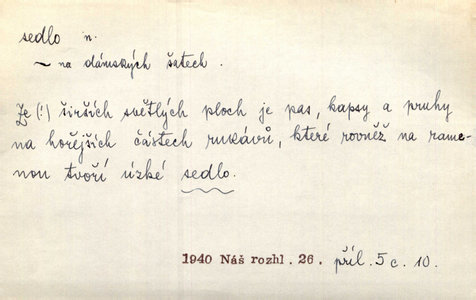 sedlo n.
~ na dámských šatech.
Ze (!) širších světlých ploch je pas, kapsy a pruhy
na hořejších částech rukávů, které rovněž na rame-
nou tvoří úzké sedlo.
1940 Náš rozhl. 26. příl. 5 c. 10.